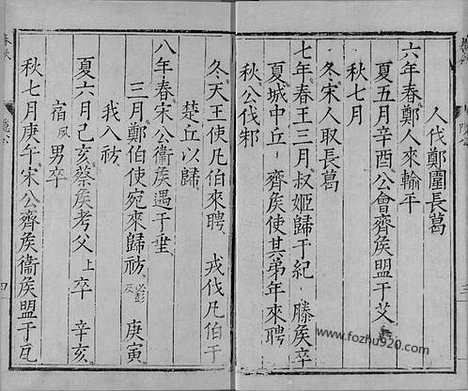 人伐鄭圍長葛
六年春鄭人來輸平
夏五月辛酉公會齊侯盟于艾
秋七月
冬宋人取長葛
七年春王三月叔姬歸于紀 滕侯卒
夏城中丘 齊侯使其弟年來聘
秋公伐邾
冬天王使凡伯來聘 戎伐凡伯于
楚丘以歸
八年春宋公衞侯遇于垂
三月鄭伯使宛來歸祊 必彭反 庚寅
我入祊
夏六月己亥蔡侯考父上卒 辛亥
宿夙男卒
秋七月庚午宋公齊侯衞侯盟于瓦
www.fozhu920.com